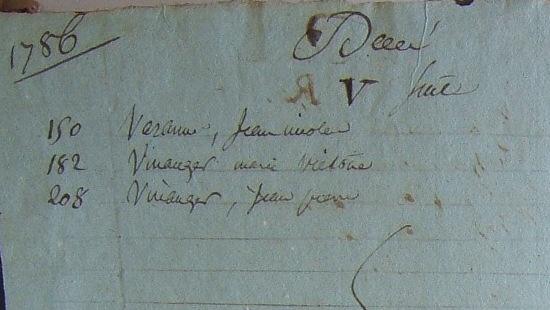 1786
Décé
V
suite
150 Varanne, Jean nicolas
182 Vinanger marie victoire
208 Vinanger, Jean pierre